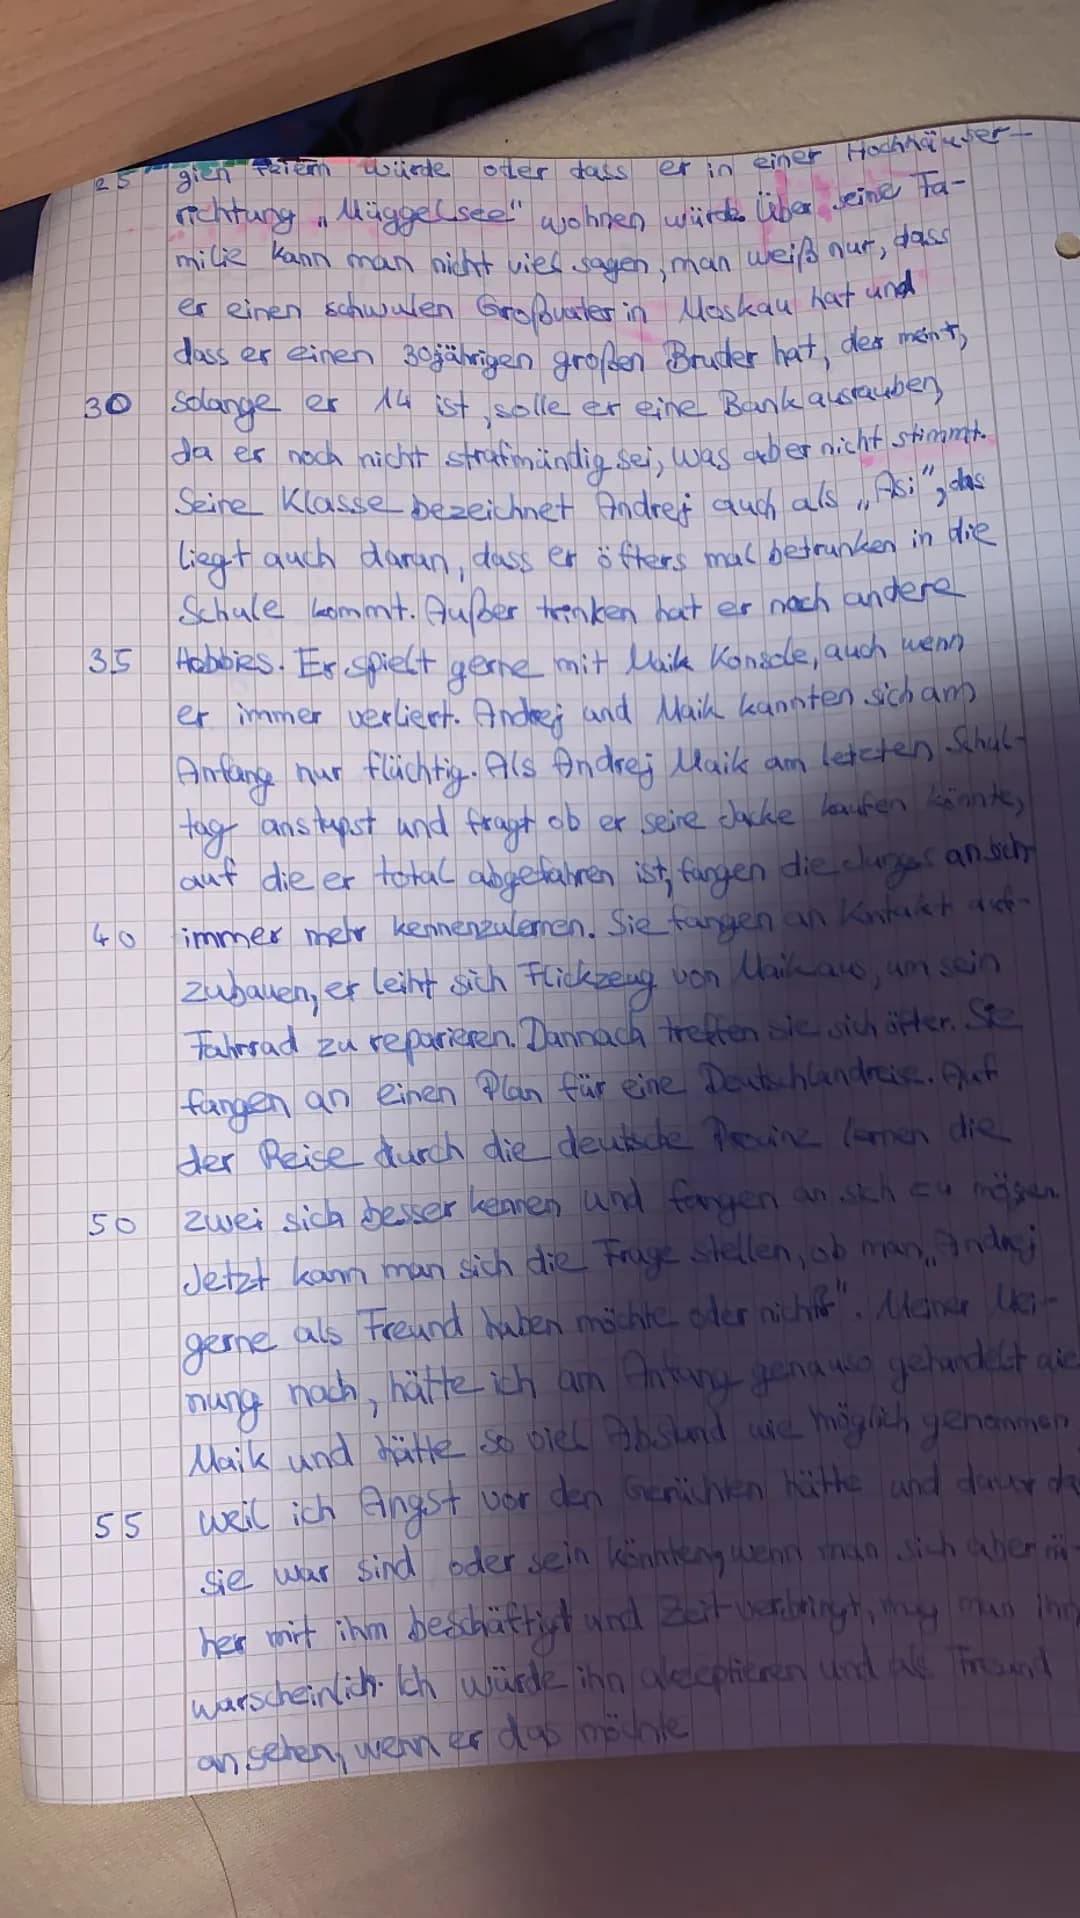 25 gien feiern würde oder dass er in einer Hochhäuser-
richtung „Müggelsee" wohnen würde. Über seine Fa-
milie kann man nicht viel sagen, man weiß nur, dass
er einen schwulen Großvater in Moskau hat und
dass er einen 30jährigen großen Bruder hat, der meint,
30 solange er 14 ist, solle er eine Bank ausrauben,
da er noch nicht strafmündig sei, was aber nicht stimmt.
Seine Klasse bezeichnet Andrej auch als „Asi", das
liegt auch daran, dass er öfters mal betrunken in die
Schule kommt. Außer trinken hat er noch andere
35 Hobbies. Er spielt gerne mit Maik Konsole, auch wenn
er immer verliert. Andrej und Maik kannten sich am
Anfang nur flüchtig. Als Andrej Maik am letzten Schul-
tag anstupst und fragt ob er seine Jacke kaufen könnte,
auf die er total abgefahren ist, fangen die Jungs an sich
40 immer mehr kennenzulernen. Sie fangen an Kontakt auf-
zubauen, er leiht sich Flickzeug von Maik aus, um sein
Fahrrad zu reparieren. Dannach treffen sie sich öfter. Sie
fangen an einen Plan für eine Deutschlandreise. Auf
der Reise durch die deutsche Provinz lernen die
50 zwei sich besser kennen und fangen an sich zu mögen.
Jetzt kann man sich die Frage stellen, ob man „Andrej
gerne als Freund haben möchte oder nicht". Meiner Mei-
nung nach, hätte ich am Anfang genauso gehandelt wie
Maik und hätte so viel Abstand wie möglich genommen
55 weil ich Angst vor den Gerüchten hätte und davor da
sie war sind oder sein könnten, wenn man sich aber nä-
her mit ihm beschäftigt und Zeit verbringt, mag man ihn
warscheinlich. Ich würde ihn akzeptieren und als Freund
ansehen, wenn er das möchte